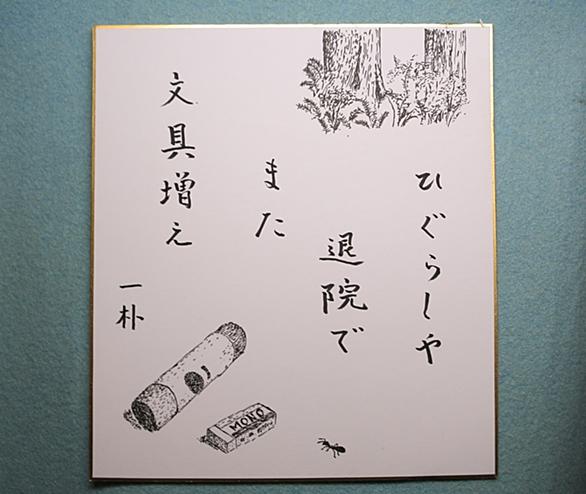 ひぐらしや
退院で
また
文具増え
一朴
MONO